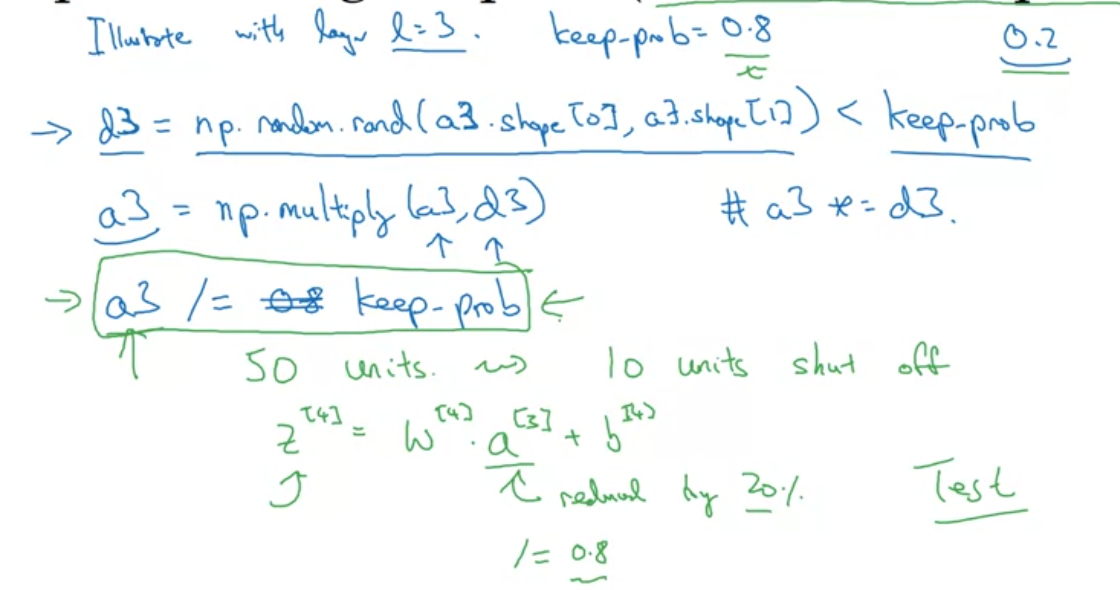 Illustrate with layer l=3. keep-prob=0.8 0.2
x
→ d3 = np.random.rand(a3.shape[0], a3.shape[1]) < keep-prob
a3 = np.multiply(a3,d3) # a3 *= d3.
↑ ↑
→ a3 /= 0.8 keep-prob ←
↑ 50 units. ⇝ 10 units shut off
z^[4] = W^[4] · a^[3] + b^[4]
reduced by 20% Test
/= 0.8